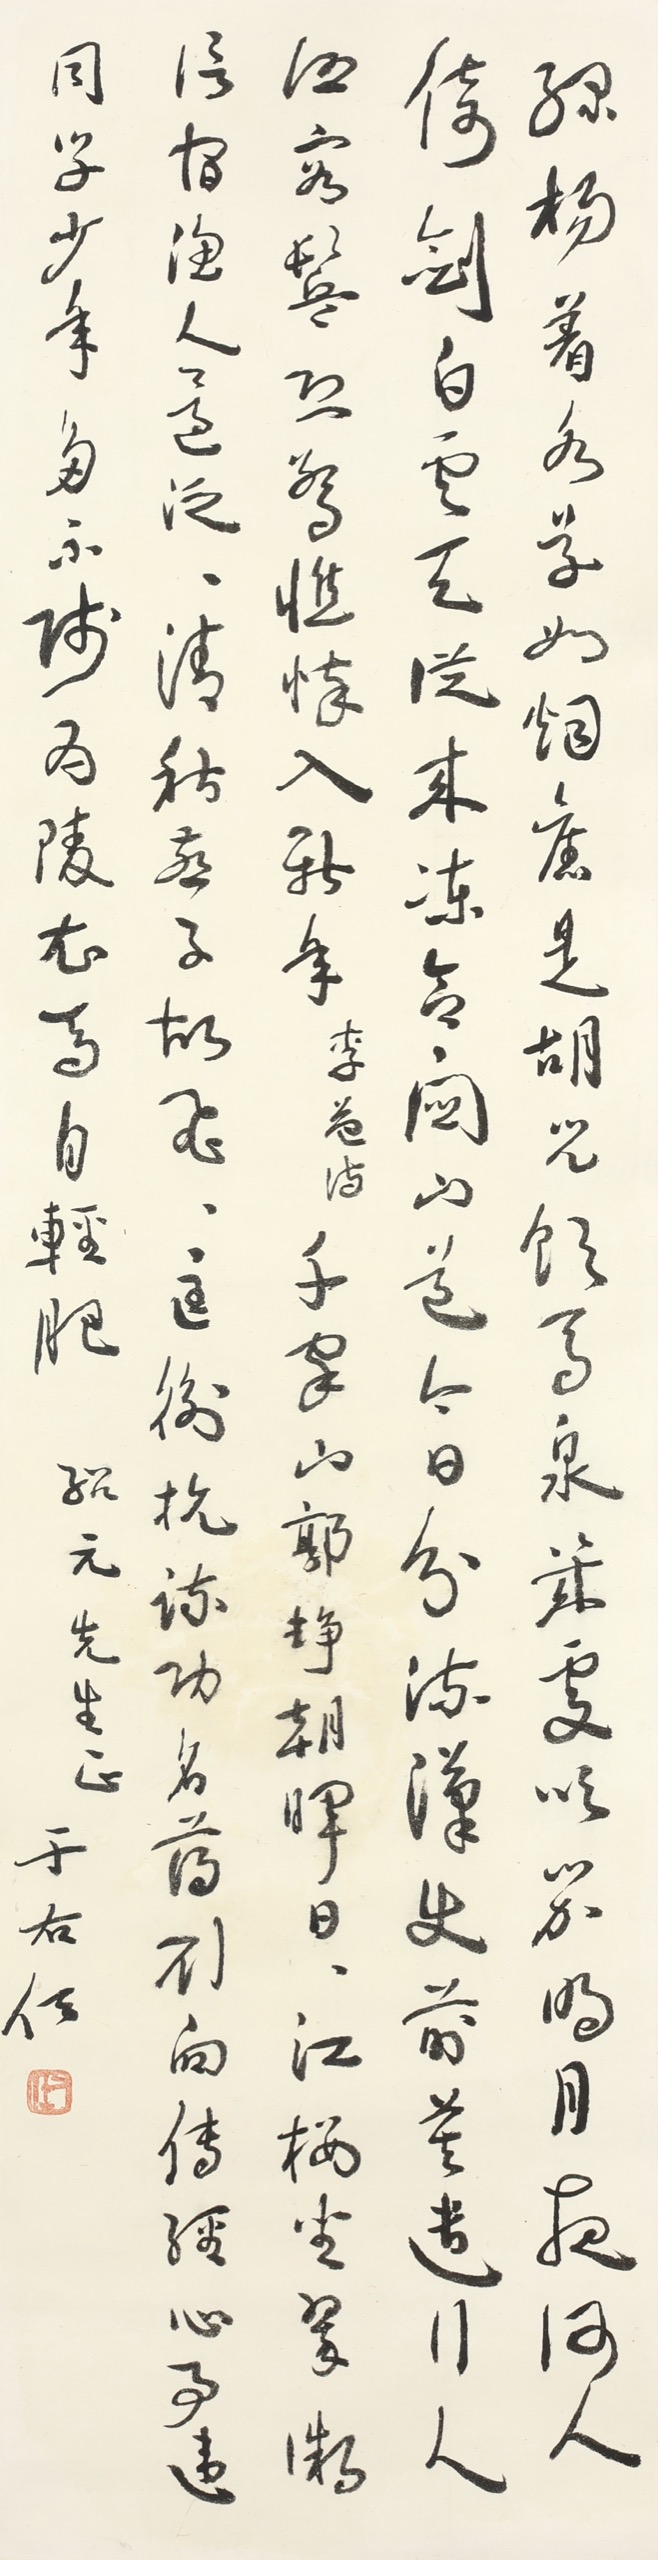 綠楊着水草如烟舊是胡兒飲馬泉幾處吹笳明月夜何人
倚劍白雲天從來凍合關山道今日分流漢使前莫遣行人
照容鬢恐驚憔悴入新年 李益詩 千家山郭靜朝暉日、江樓坐翠微
信宿漁人還泛、清秋燕子故飛、匡衡抗疏功名薄劉向傳經心事違
同學少年多不賤五陵衣馬自輕肥 紹元先生正
于右任